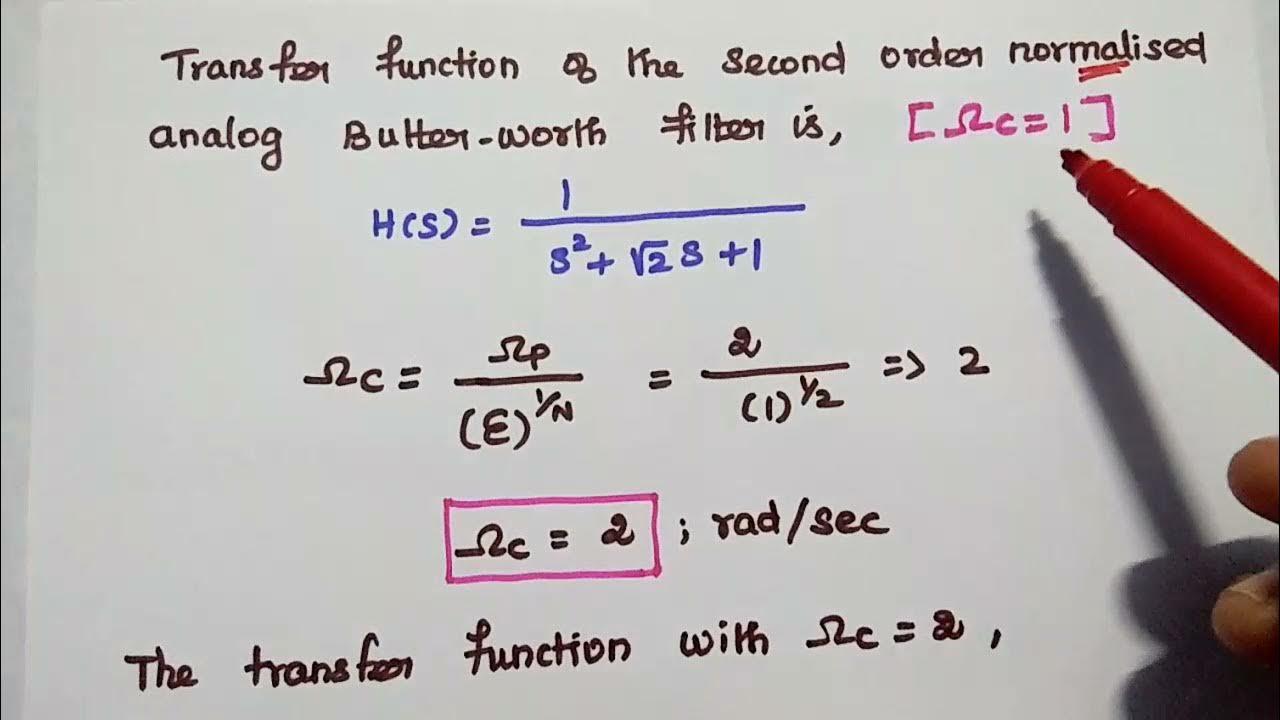 Transfer function of the second order normalised
analog Butter-worth filter is, [Ωc=1]
H(s) = 1 / (s² + √2 s + 1)
Ωc = Ωp / (ε)^1/N = 2 / (1)^1/2 => 2
Ωc = 2 ; rad/sec
The transfer function with Ωc = 2,